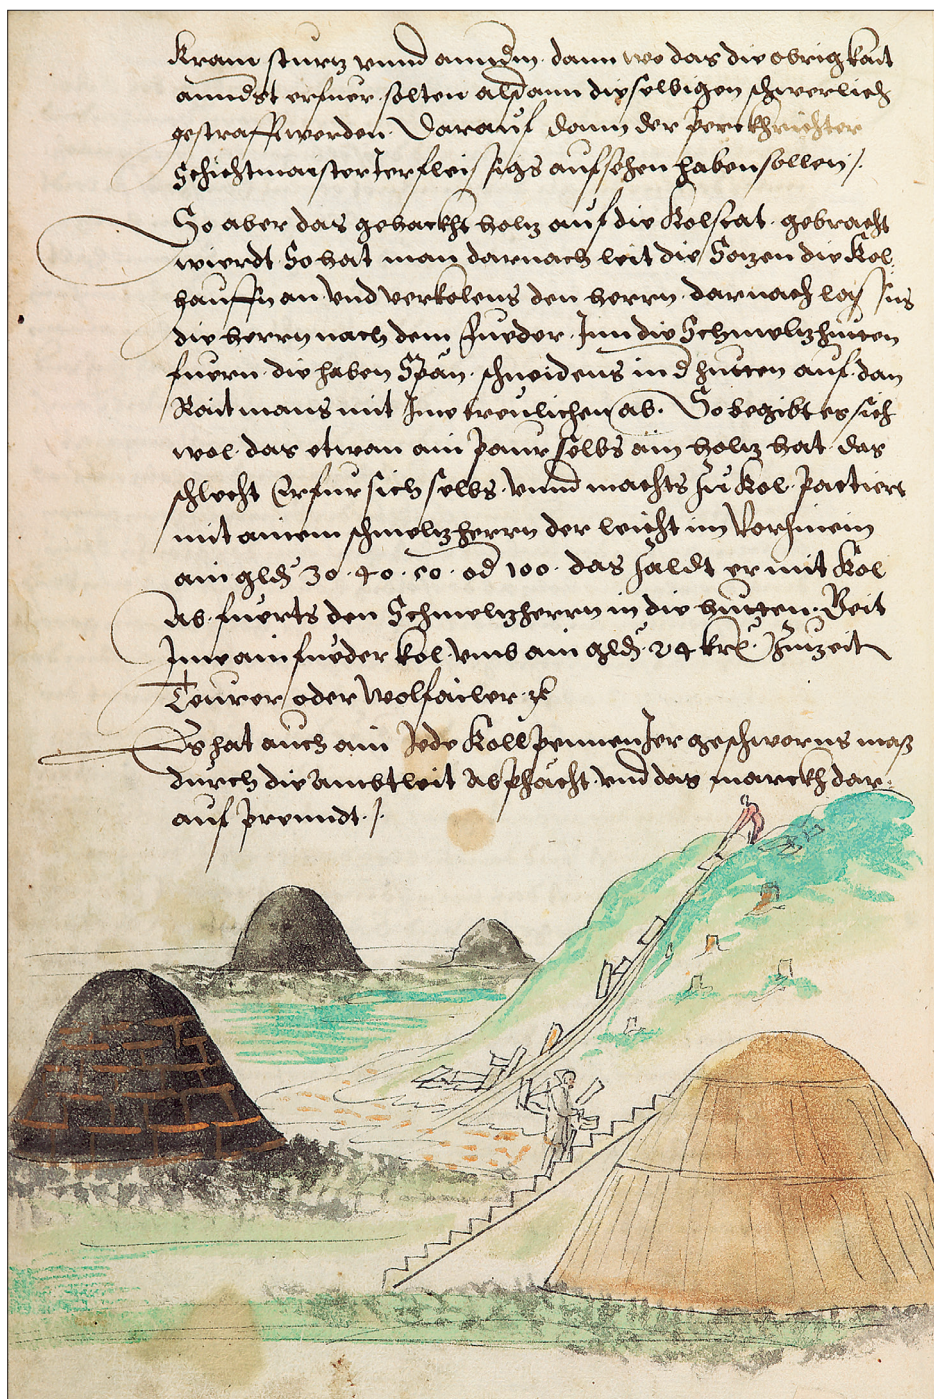 Kram sturz unnd annderm. dann wo das die obrigkait
annderst erfuer. solten alsdann dieselbigen schwerlich
gestrafft werden. Darauf dann der perckhrichter
Schichtmaister Ier fleissigs aufsehen haben sollen /.
So aber das gehackht holtz auf die Kolstat. gebracht
wierdt So hat man darnach leit die Sezen die Kol
hauffn an. und verkolens den herrn. darnach
die herrn nach dem fueder. Inn die Schmeltzhutten
fuern. die haben Span. schneidens in der hutten auf. dan
Rait mans mit Ime treulichen ab. So begibt es sich
wol. das etwan ain paur selbs ain holtz hat das
schlecht Er fur sich selbs. unnd machts zu Kol. Pactiert
mit ainem schmeltzherrn der leicht im Vorhinein
ain gldn 30. 40. 50. oder 100. das zaldt er mit Kol
ab. fuerts den Schmeltzherrn in die hutten. Geit
Ime ain fueder kol. umb ain gldn. 24 krz. Zuzeitn
Teurer oder Wolfailer. zc
Es hat auch ain Jede Kollpennen Ier geschworns mass
durch die ambtleit abphächt. und das marckh dar:
auf prenndt. /.